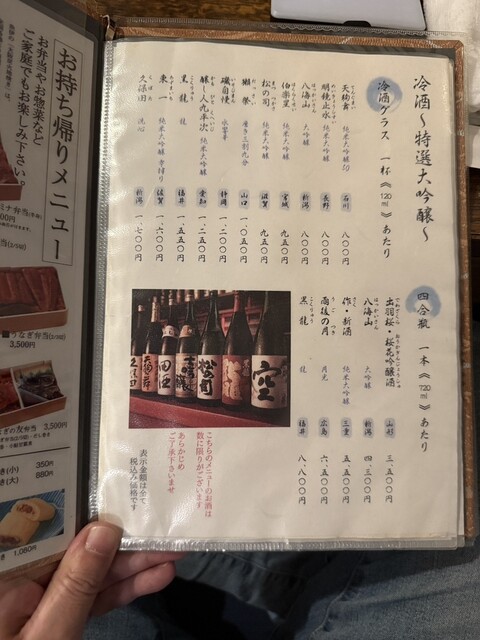 冷酒～特選大吟醸～
冷酒グラス 一杯《120ml》あたり
天狗舞 純米大吟醸50 石川 八〇〇円
明鏡止水 純米大吟醸 長野 八〇〇円
八海山 大吟醸 新潟 八〇〇円
伯楽星 純米大吟醸 宮城 九五〇円
松の司 純米大吟醸 滋賀 九五〇円
獺祭 磨き三割九分 山口 一、〇五〇円
磯自慢 水響華 静岡 一、二〇〇円
醸し人九平次 純米大吟醸 愛知 一、二五〇円
黒龍 龍 福井 一、五五〇円
東一 純米大吟醸 雫搾り 佐賀 一、六〇〇円
久保田 洗心 新潟 一、七〇〇円
四合瓶 一本《720ml》あたり
出羽桜・桜花吟醸酒 山形 三、五〇〇円
八海山 大吟醸 新潟 四、三〇〇円
作・新酒 純米大吟醸 三重 五、五〇〇円
雨後の月 月光 広島 六、五〇〇円
黒龍 龍 福井 八、八〇〇円
こちらのメニューのお酒は
数に限りがございます
あらかじめ
ご了承下さいませ
表示金額は全て
税込み価格です
お持ち帰りメニュー
お弁当やお惣菜など
ご家庭でもお楽しみ下さい。
うなぎ弁当
3,500円
3,500円
(小) 350円
(大) 680円
1,080円